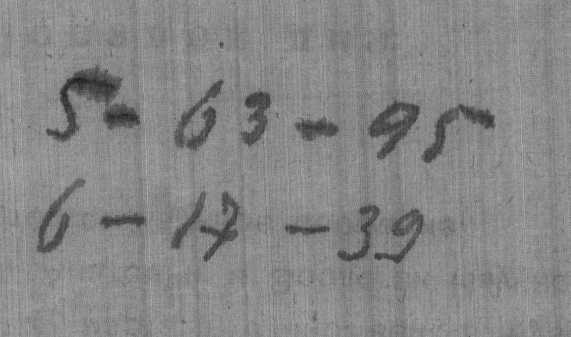 5-63-95
6-17-39